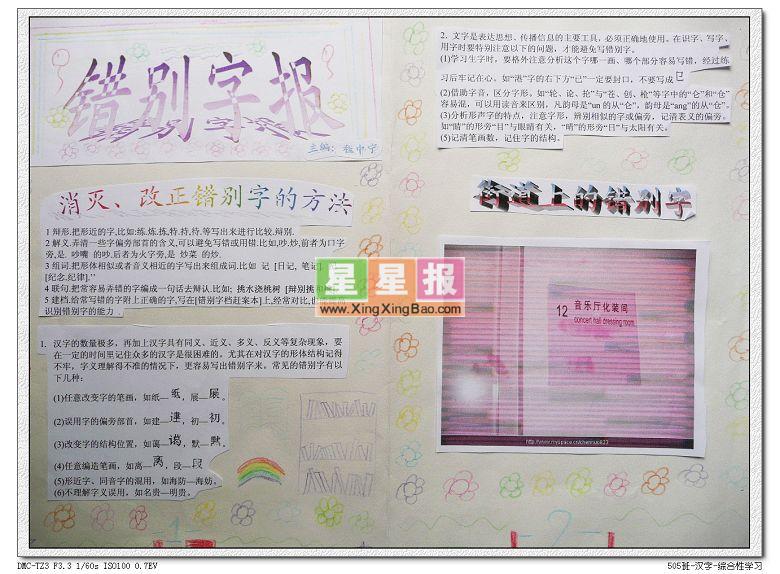 错别字报
主编：
消灭、改正错别字的方法
1 辩形.把形近的字,比如:练.炼.拣,特.持.待.等写出来进行比较.辩别.
2 解义.弄清一些字偏旁部首的含义,可以避免写错或用错.比如,吵.炒,前者为口字
旁,是. 吵嘴 的吵.后者为火字旁,是 炒菜 的炒.
3 组词.把形体相似或者音义相近的字写出来组成词.比如 记 [日记，笔记]
[纪念.纪律].''
4 联句.把常容易弄错的字编成一句话去辩认.比如; 挑水浇桃树 [辩别挑和
5 建档.给常写错的字附上正确的字,写在[错别字档赶案本]上,经常对比,也
识别错别字的能力 .
星星报
www.XingXingBao.com
1. 汉字的数量极多，再加上汉字具有同义、近义、多义、反义等复杂现象，要
在一定的时间里记住众多的汉字是很困难的。尤其在对汉字的形体结构记得
不牢，字义理解得不准的情况下，更容易写出错别字来。常见的错别字有以
下几种：
(1)任意改变字的笔画，如纸—，展—。
(2)误用字的偏旁部首，如建—，初—。
(3)改变字的结构位置，如蔼—，默—。
(4)任意编造笔画，如离—，段—。
(5)形近字、同音字的混用，如海防—海妨。
(6)不理解字义误用，如名贵—明贵。
1
2. 文字是表达思想、传播信息的主要工具，必须正确地使用。在识字、写字、
用字时要特别注意以下的问题，才能避免写错别字。
(1)学习生字时，要格外注意分析这个字哪一画、哪个部分容易写错，经过练
习后牢记在心。如“港”字的右下方“已”一定要封口，不要写成已
(2)借助字音，区分字形，如“轮、论、抢”与“苍、创、枪”等字中的“仑”和“仓”
容易混，可以用读音来区别，凡韵母是“un 的从“仑”，韵母是“ang”的从“仓”。
(3)分析形声字的特点，注意字形，辨别相似的字或偏旁，记清表义的偏旁。
如“睛”的形旁“目”与眼睛有关，“晴”的形旁“日”与太阳有关。
(5)记清笔画数，记住字的结构。
街道上的错别字
12
音乐厅化装间
concert hall dressing room
http://www.myspace.cn/chennuo823
2
DMC-TZ3 F3.3 1/60s ISO100 0.7EV
505班-汉字-综合性学习